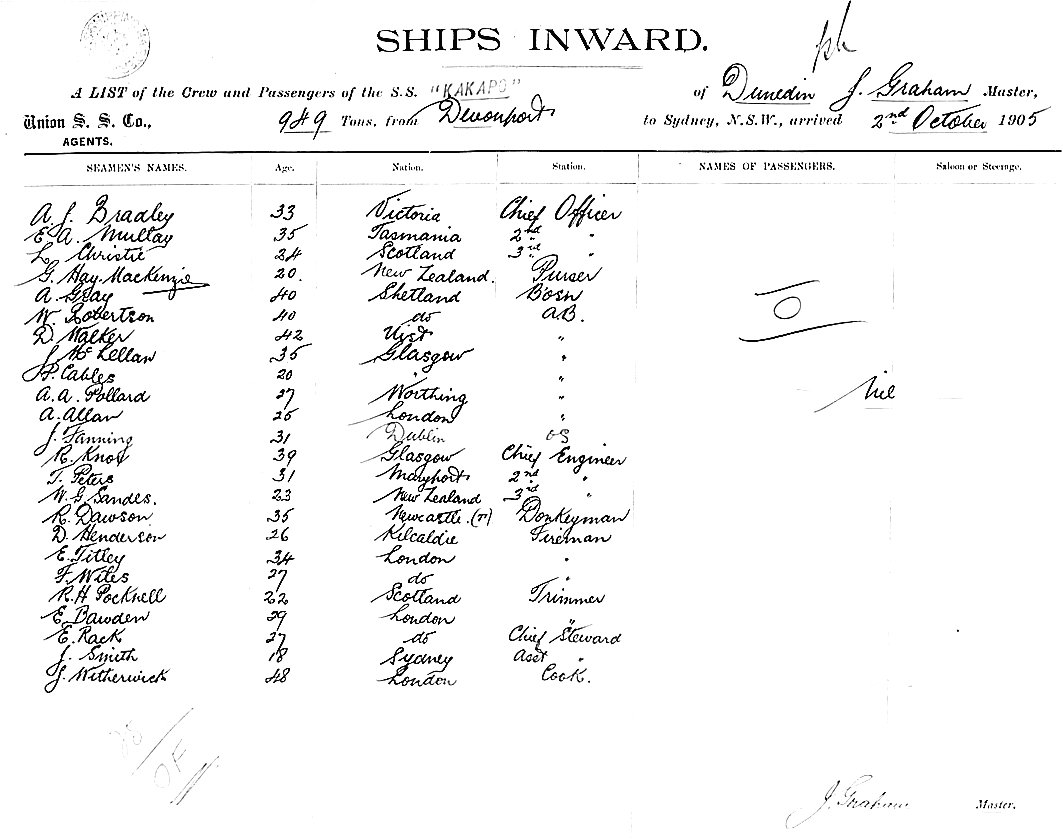 SHIPS INWARD.
A LIST of the Crew and Passengers of the S.S. "KAKAPO" of Dunedin J. Graham Master,
Union S. S. Co., 949 Tons, from Devonport to Sydney, N.S.W., arrived 2nd October 1905
AGENTS.
SEAMEN'S NAMES. Age. Nation. Station. NAMES OF PASSENGERS. Saloon or Steerage.
A. J. Bradley 33 Victoria Chief Officer
E. A. Multay 35 Tasmania 2nd "
L. Christie 24 Scotland 3rd "
G. Hay. MacKenzie 20. New Zealand. Purser
A. Gray 40 Shetland Bosn
W. Robertson 40 do AB.
D. Walker 42 Uist "
J. McLellan 35 Glasgow "
P. Cables 20 " "
A. A. Pollard 27 Worthing " Nil
A. Allan 25 London "
J. Fanning 31 Dublin OS
R. Knox 39 Glasgow Chief Engineer
T. Peters 31 Maryport 2nd "
W. G. Sandes. 23 New Zealand 3rd "
R. Dawson 35 Newcastle. Donkeyman
D. Henderson 26 Kilcaldie Fireman
E. Titley 34 London "
F. Wiles 27 do "
R. H Pocknell 22 Scotland Trimmer
E. Bawden 29 London "
E. Rack 27 do Chief Steward
J. Smith 18 Sydney Asst "
J. Witherwick 48 London Cook.
J. Graham Master.